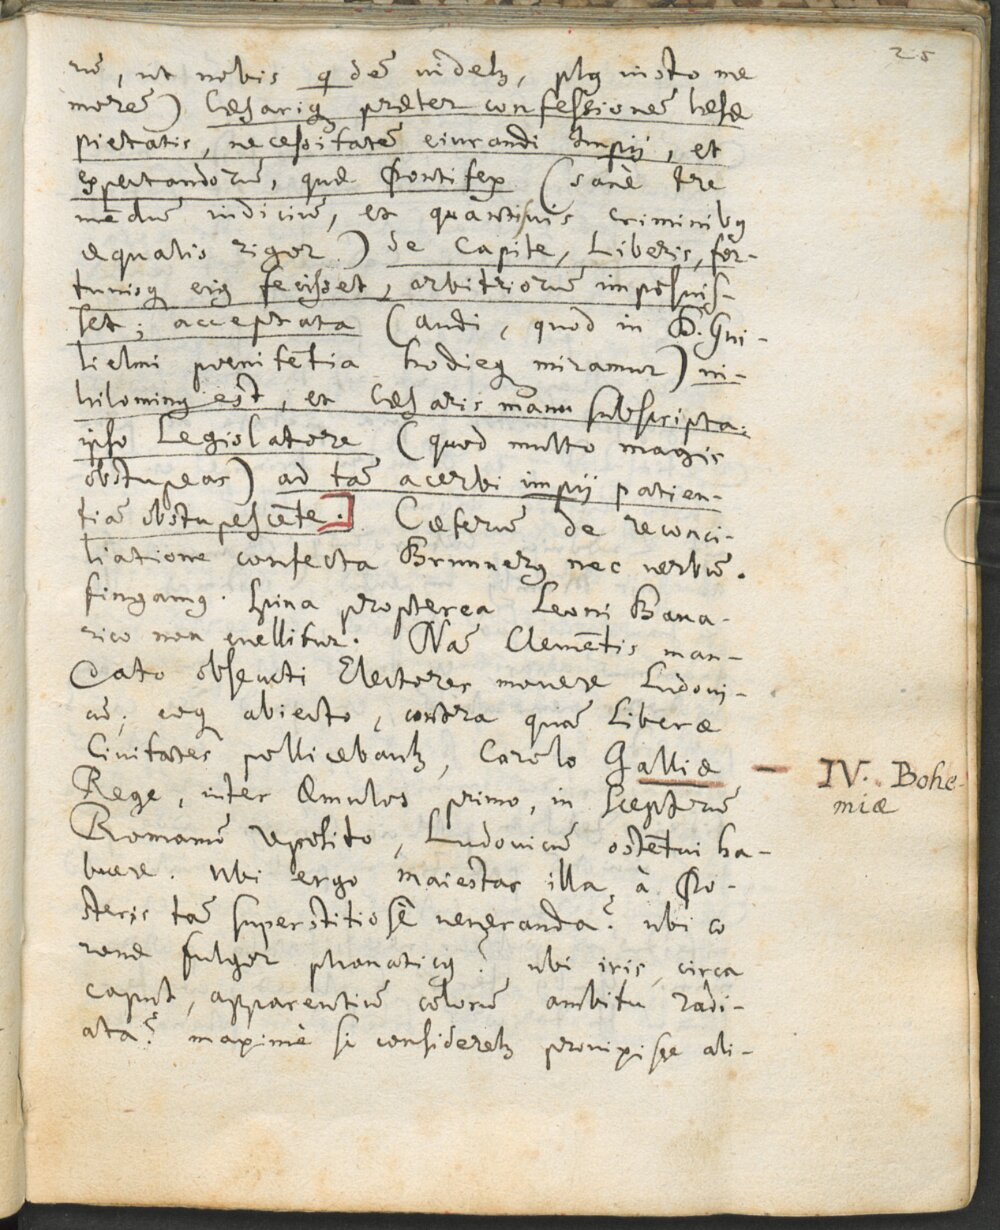 25
rū, ut nobis q̄dē videtꝫ, plꝰ iusto me
morē) Cæsariꝗ præter confessionē læsæ
pietatis, necessitatē eiurandi Impij, et
expectandorū, quæ Pontifex (sanè tre
mēdū iudiciū, et quantisuis criminibꝰ
æqualis rigor) de Capite, Liberis, for-
tunisꝗ eiꝰ fecisset, arbitriorū imposuis-
set; acceptata (audi, quod in D. Gui-
lielmi poenitētia hodieꝗ miramur) ni-
hilominꝰ est, et Cæsaris manu subscripta:
ipso Legislatore (quod multo magis
obstupeas) ad tā acerbi impij patien-
tiā obstupescēte. Cæterū de reconci-
liatione confecta Brunnerꝰ nec verbū.
fingamꝰ. spina propterea Leoni Baua-
rico non euellitur. Nā Clemētis man-
dato obsecuti Electores mouere Ludoui-
cū; eoꝗ abiecto, contra quā Liberæ
Ciuitates pollicebantꝫ, Carolo Galliæ
IV. Bohe-
miæ
Rege, inter Æmulos primo, in sceptrū
Romanū reposito, Ludouicū ostētui ha-
buere. Ubi ergo maiestas illa, à Po-
steris tā superstitiosè ueneranda? ubi co
ronæ fulgor phanaticꝰ? ubi iris, circa
caput, apparentiū colorū ambitu radi-
ata? maximè si consideretꝫ promisisse ali-